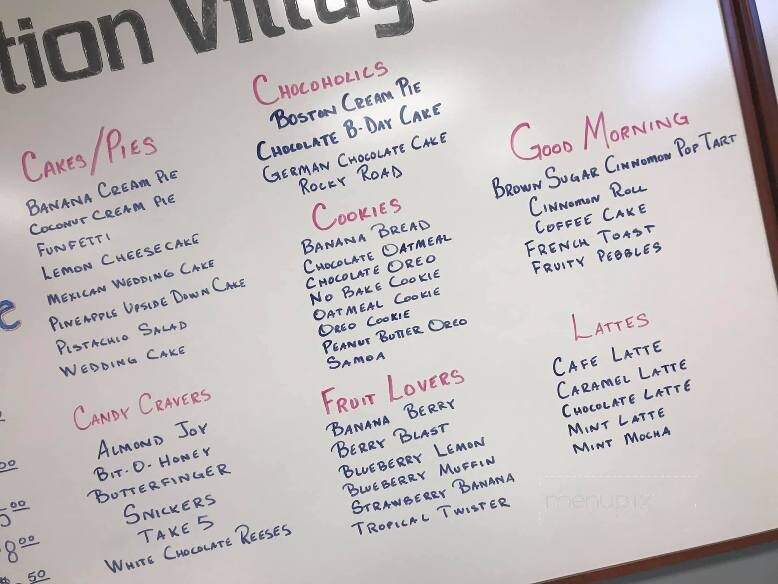 tion Village
CHOCOHOLICS
BOSTON CREAM PIE
CHOCOLATE B-DAY CAKE
GERMAN CHOCOLATE CAKE
ROCKY ROAD
CAKES/PIES
BANANA CREAM PIE
COCONUT CREAM PIE
FUNFETTI
LEMON CHEESECAKE
MEXICAN WEDDING CAKE
PINEAPPLE UPSIDE DOWN CAKE
PISTACHIO SALAD
WEDDING CAKE
COOKIES
BANANA BREAD
CHOCOLATE OATMEAL
CHOCOLATE OREO
NO BAKE COOKIE
OATMEAL COOKIE
OREO COOKIE
PEANUT BUTTER OREO
SAMOA
GOOD MORNING
BROWN SUGAR CINNOMON POP TART
CINNOMON ROLL
COFFEE CAKE
FRENCH TOAST
FRUITY PEBBLES
CANDY CRAVERS
ALMOND JOY
BIT-O-HONEY
BUTTERFINGER
SNICKERS
TAKE 5
WHITE CHOCOLATE REESES
FRUIT LOVERS
BANANA BERRY
BERRY BLAST
BLUEBERRY LEMON
BLUEBERRY MUFFIN
STRAWBERRY BANANA
TROPICAL TWISTER
LATTES
CAFE LATTE
CARAMEL LATTE
CHOCOLATE LATTE
MINT LATTE
MINT MOCHA
e
00
5 00
8 00
50
menupix